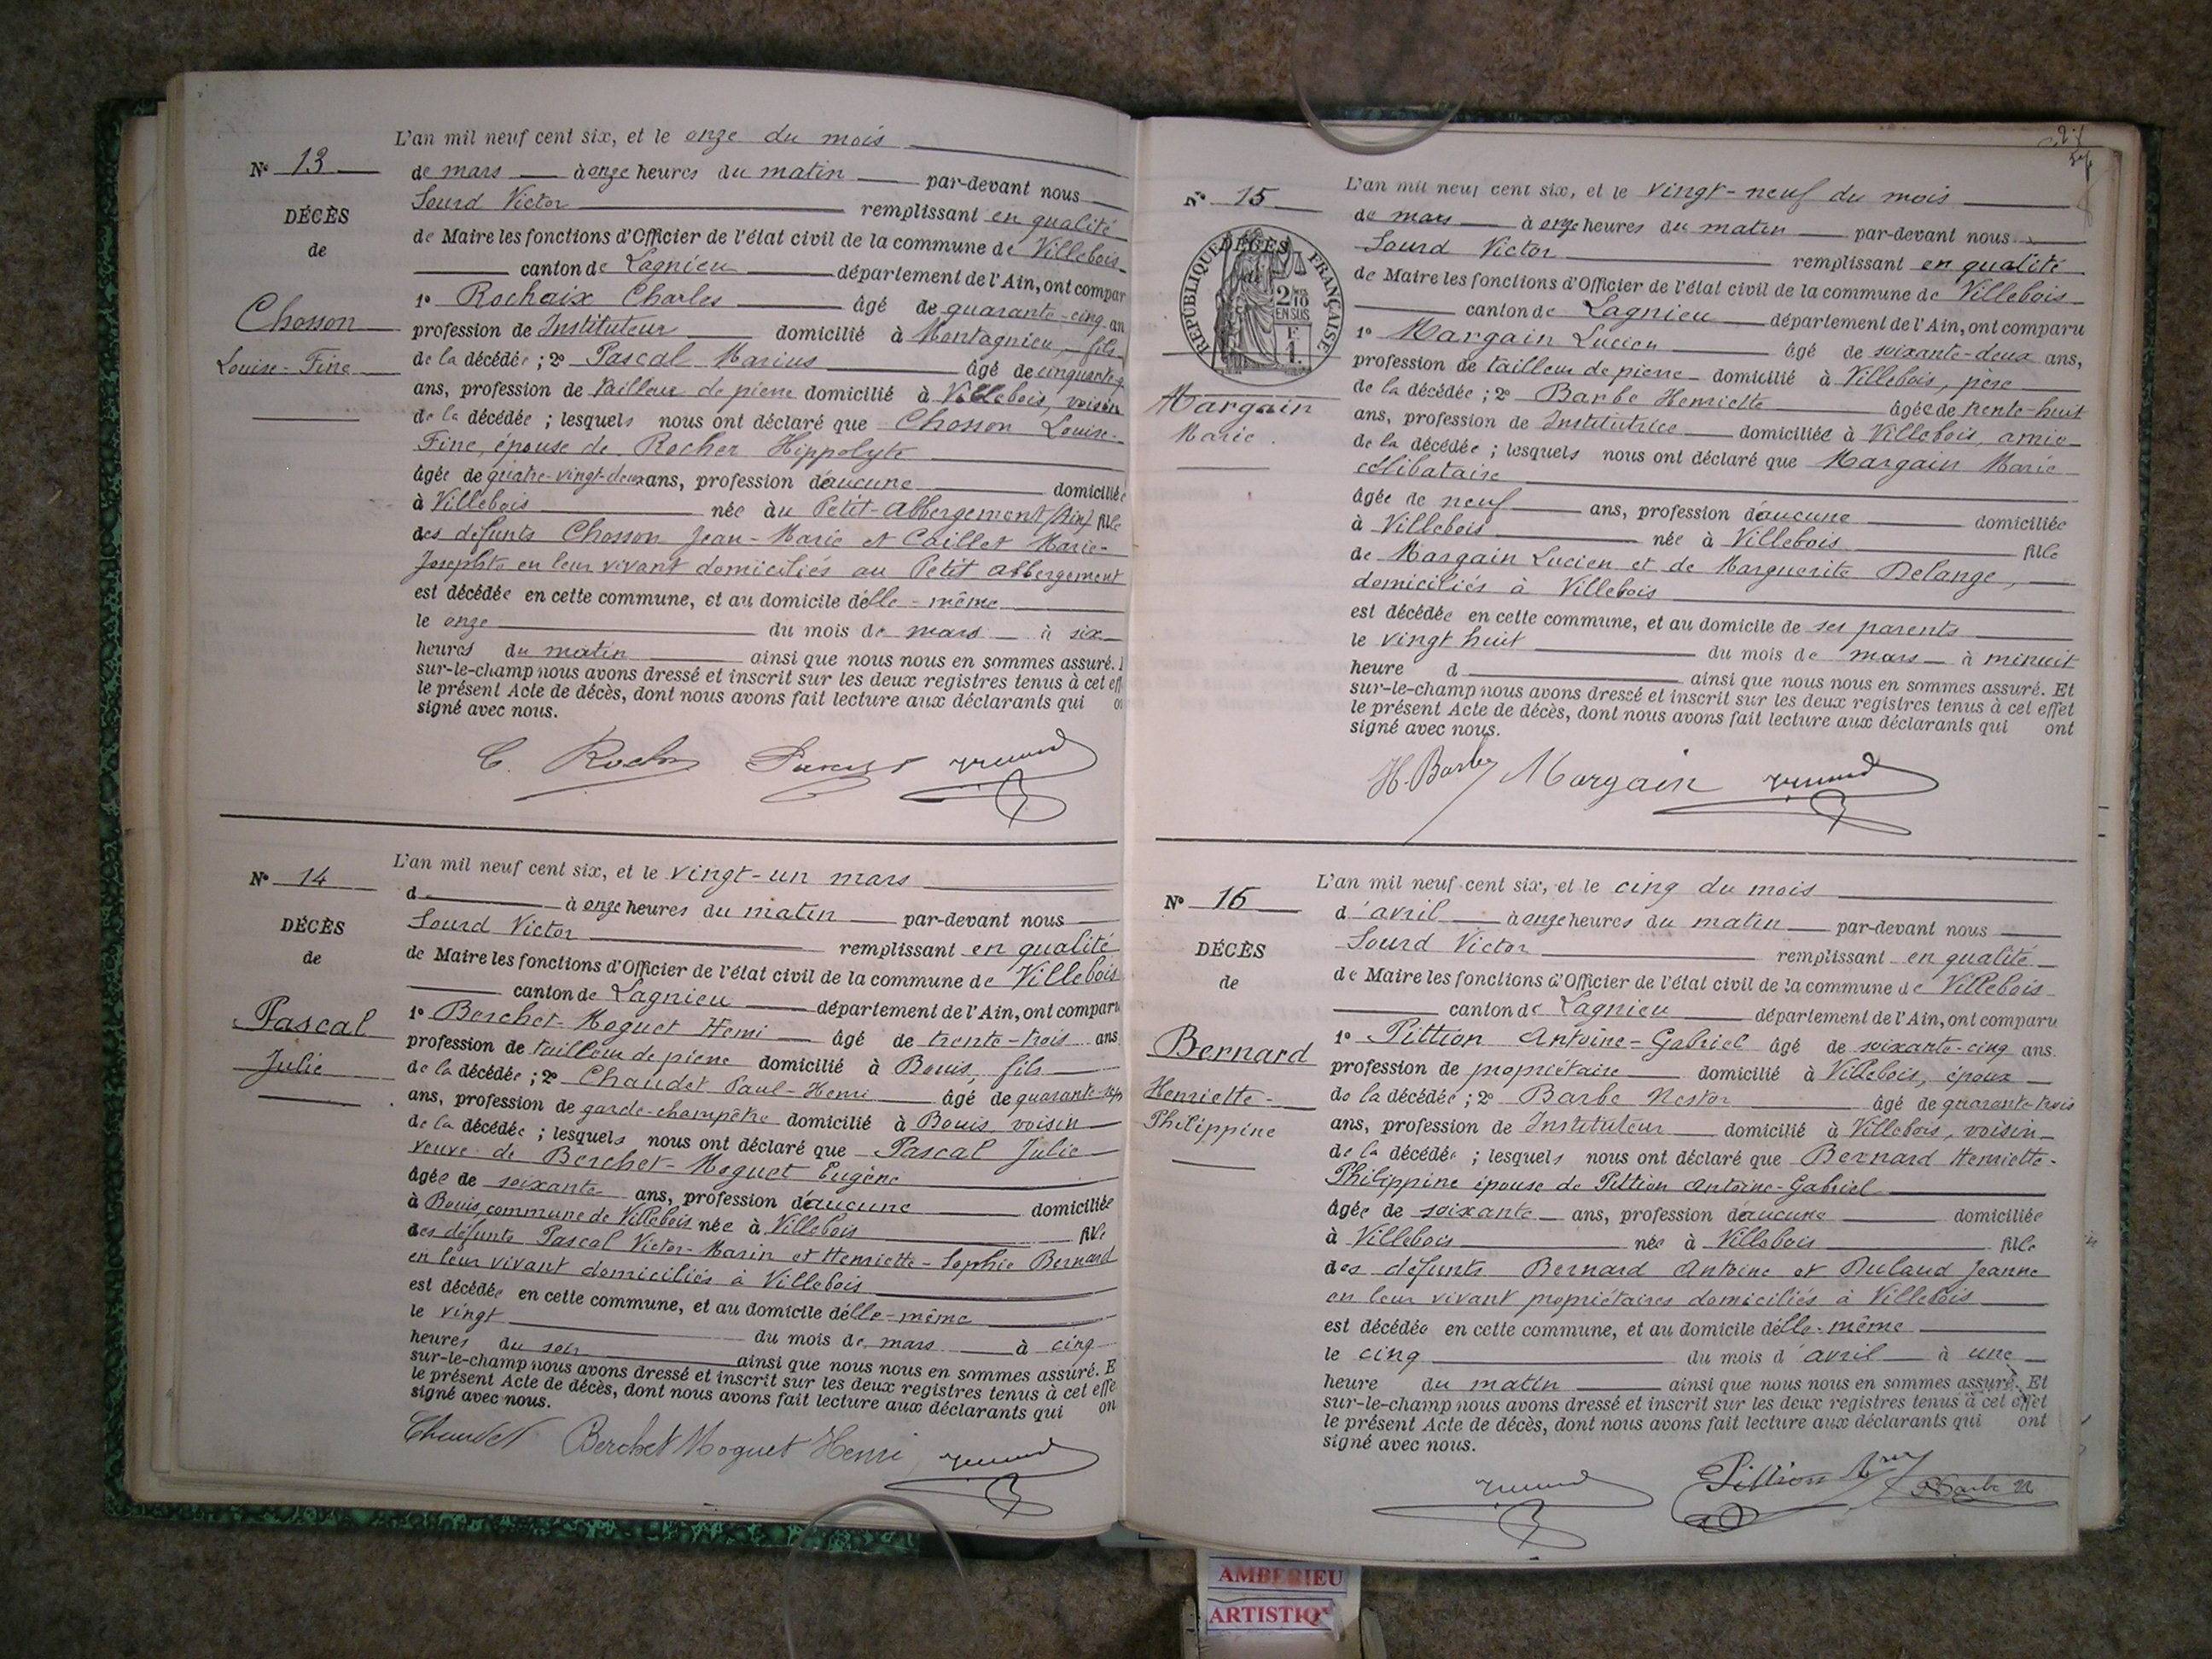 L'an mil neuf cent six, et le onze du mois
N° 13
de mars à onze heures du matin par-devant nous
Sourd Victor remplissant en qualité
DÉCÈS
de Maire les fonctions d'Officier de l'état civil de la commune de Villebois
de
canton de Lagnieu département de l'Ain, ont compar
1° Rochaix Charles âgé de quarante-cinq an
Chosson
profession de Instituteur domicilié à Montagnieu, fils
Louise-Fine
de la décédée ; 2° Pascal Marius âgé de cinquante
ans, profession de tailleur de pierre domicilié à Villebois, voisin
de la décédée ; lesquels nous ont déclaré que Chosson Louise-
Fine, épouse de Rocher Hippolyte
âgée de quatre-vingt-deux ans, profession d'aucune domiciliée
à Villebois née au Petit-Abbergement (Ain) fille
des défunts Chosson Jean-Marie et Caillet Marie-
Josephte en leur vivant domiciliés au Petit Abbergement
est décédée en cette commune, et au domicile d'elle-même
le onze du mois de mars à six
heures du matin ainsi que nous nous en sommes assuré.
sur-le-champ nous avons dressé et inscrit sur les deux registres tenus à cet eff
le présent Acte de décès, dont nous avons fait lecture aux déclarants qui o
signé avec nous.
L'an mil neuf cent six, et le vingt-un mars
N° 14
d à onze heures du matin par-devant nous
Sourd Victor remplissant en qualité
DÉCÈS
de Maire les fonctions d'Officier de l'état civil de la commune de Villebois
de
canton de Lagnieu département de l'Ain, ont comparu
1° Berchet-Moguet Henri âgé de trente-trois ans
Pascal
profession de tailleur de pierre domicilié à Bouis, fils
Julie
de la décédée ; 2° Chaudet Paul-Henri âgé de quarante-sept
ans, profession de garde-champêtre domicilié à Bouis, voisin
de la décédée ; lesquels nous ont déclaré que Pascal Julie
veuve de Berchet-Moguet Eugène
âgée de soixante ans, profession d'aucune domiciliée
à Bouis, commune de Villebois née à Villebois fille
des défunts Pascal Victor-Marin et Henriette-Sophie Bernard
en leur vivant domiciliés à Villebois
est décédée en cette commune, et au domicile d'elle-même
le vingt du mois de mars à cinq
heures du soir ainsi que nous nous en sommes assuré. E
sur-le-champ nous avons dressé et inscrit sur les deux registres tenus à cet effe
le présent Acte de décès, dont nous avons fait lecture aux déclarants qui on
signé avec nous.
Chaudet Berchet Moguet Henri
L'an mil neuf cent six, et le vingt-neuf du mois
N° 15
de mars à onze heures du matin par-devant nous
Sourd Victor remplissant en qualité
RÉPUBLIQUE FRANÇAISE
DÉCÈS
de
2/10 EN SUS
F 1.
de Maire les fonctions d'Officier de l'état civil de la commune de Villebois
canton de Lagnieu département de l'Ain, ont comparu
1° Margain Lucien âgé de soixante-deux ans,
profession de tailleur de pierre domicilié à Villebois, père
Margain
de la décédée ; 2° Barbe Henriette âgée de trente-huit
Marie.
ans, profession de Institutrice domiciliée à Villebois, amie
de la décédée ; lesquels nous ont déclaré que Margain Marie
célibataire
âgée de neuf ans, profession d'aucune domiciliée
à Villebois née à Villebois fille
de Margain Lucien et de Marguerite Delange,
domiciliés à Villebois
est décédée en cette commune, et au domicile de ses parents
le vingt huit du mois de mars à minuit
heure d ainsi que nous nous en sommes assuré. Et
sur-le-champ nous avons dressé et inscrit sur les deux registres tenus à cet effet
le présent Acte de décès, dont nous avons fait lecture aux déclarants qui ont
signé avec nous.
H. Barbe Margain
L'an mil neuf cent six, et le cinq du mois
N° 16
d'avril à onze heures du matin par-devant nous
Sourd Victor remplissant en qualité
DÉCÈS
de Maire les fonctions d'Officier de l'état civil de la commune de Villebois
de
canton de Lagnieu département de l'Ain, ont comparu
1° Pittion Antoine-Gabriel âgé de soixante-cinq ans.
Bernard
profession de propriétaire domicilié à Villebois, époux
Henriette-
de la décédée ; 2° Barbe Nestor âgé de quarante-trois
Philippine
ans, profession de Instituteur domicilié à Villebois, voisin
de la décédée ; lesquels nous ont déclaré que Bernard Henriette-
Philippine épouse de Pittion Antoine-Gabriel
âgée de soixante ans, profession d'aucune domiciliée
à Villebois née à Villebois fille
des défunts Bernard Antoine et Dulaud Jeanne
en leur vivant propriétaires domiciliés à Villebois
est décédée en cette commune, et au domicile d'elle-même
le cinq du mois d'avril à une
heure du matin ainsi que nous nous en sommes assuré. Et
sur-le-champ nous avons dressé et inscrit sur les deux registres tenus à cet effet
le présent Acte de décès, dont nous avons fait lecture aux déclarants qui ont
signé avec nous.
Pittion
AMBERIEU
ARTISTIQ